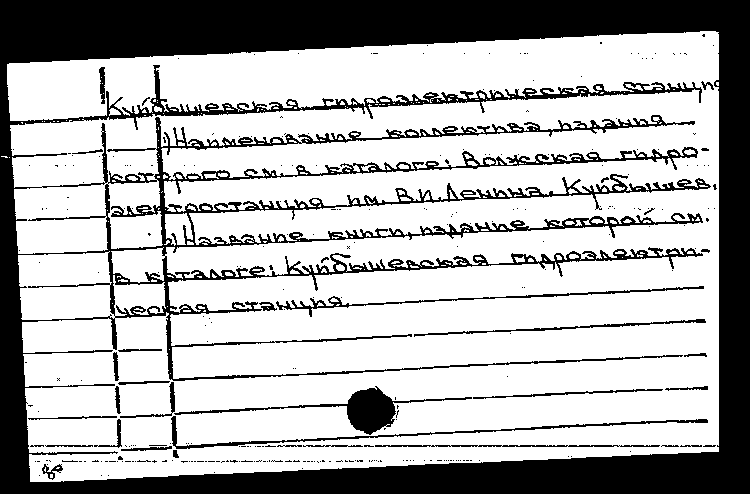 Куйбышевская гидроэлектрическая станция
1) Наименование коллектива, издания
которого см. в каталоге: Волжская гидро-
электростанция им. В.И. Ленина. Куйбышев.
2) Название книги, издание которой см.
в каталоге: Куйбышевская гидроэлектри-
ческая станция.